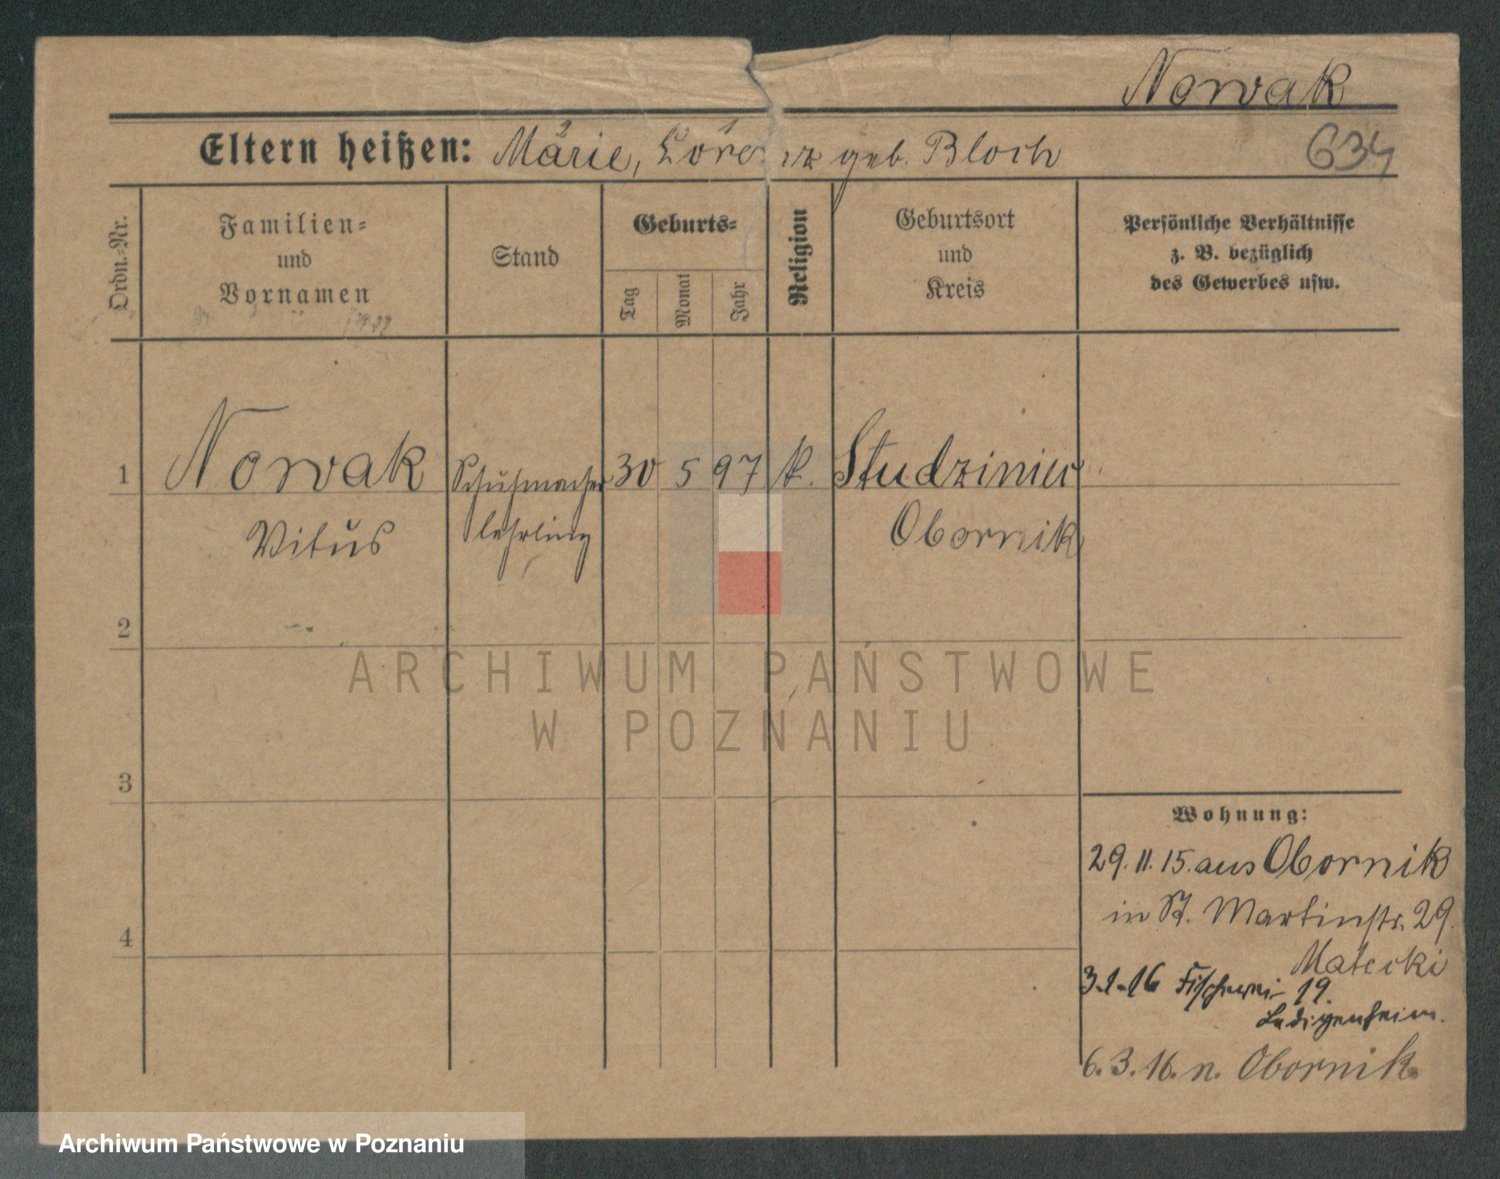 Nowak
Eltern heißen: Marie, Lorenz geb. Bloch
634
Ordn.-Nr.
Familien-
und
Vornamen
Stand
Geburts-
Tag
Monat
Jahr
Religion
Geburtsort
und
Kreis
Persönliche Verhältnisse
z. B. bezüglich
des Gewerbes usw.
1
Nowak
Schuhmacher
30 5 97 k. Studziniec
Vitus
lehrling
Obornik
2
ARCHIWUM PAŃSTWOWE
W POZNANIU
3
Wohnung:
29. 11. 15. aus Obornik
in St. Martinstr. 29.
4
Matecki
3.1.16 Fischerei 19.
Ledigenheim.
6. 3. 16. n. Obornik.
Archiwum Państwowe w Poznaniu